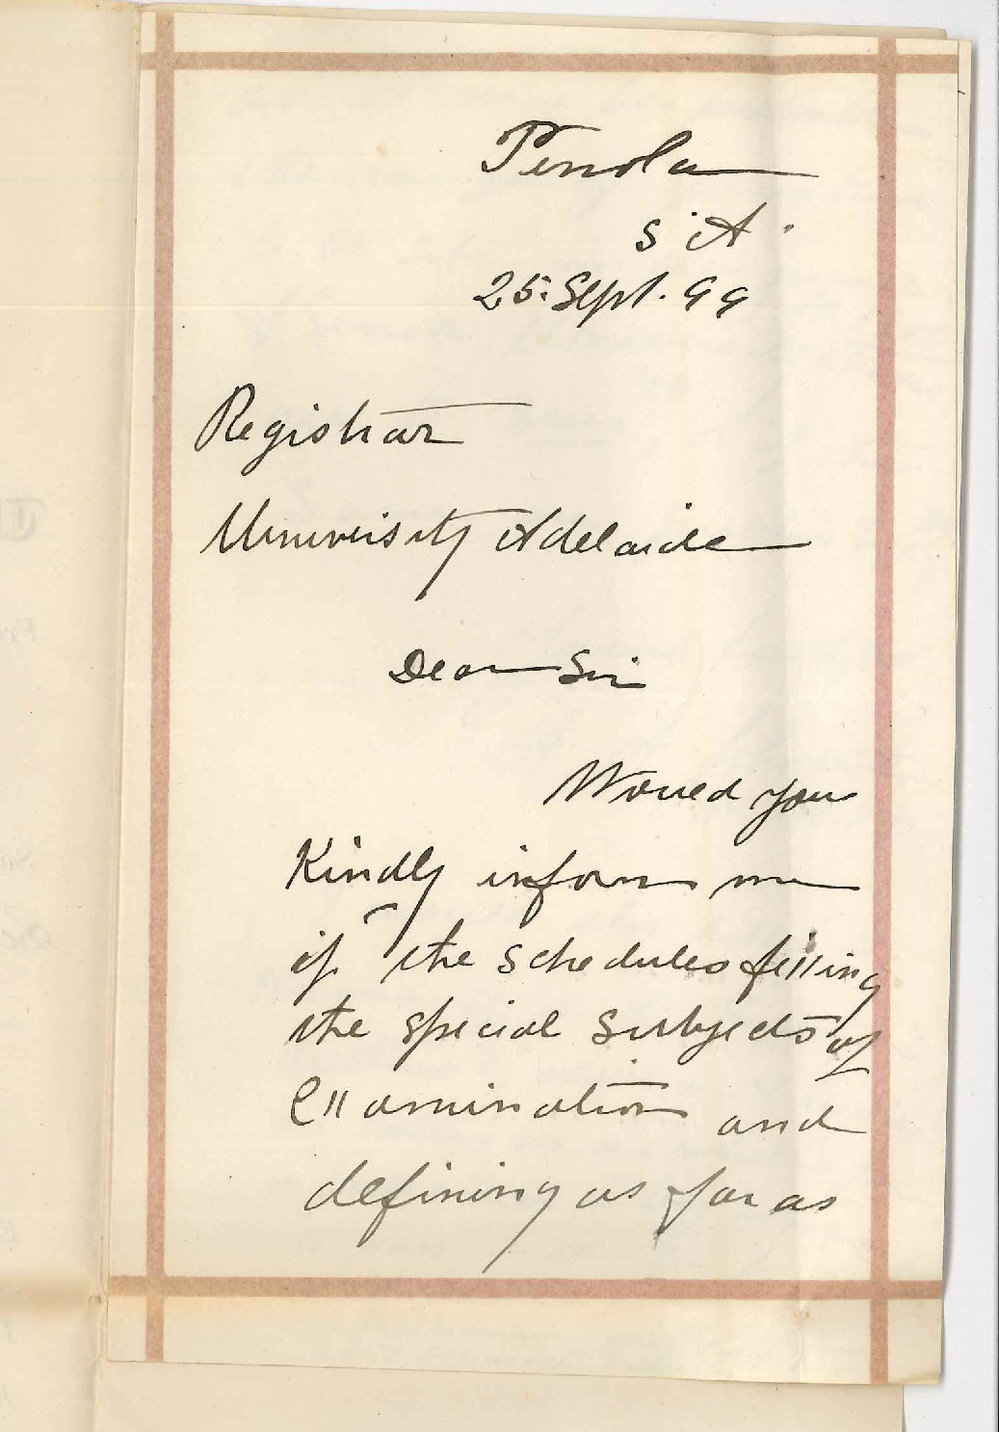 Penola
S. A.
25. Sept. 99
Registrar
University Adelaide
Dear Sir
Would you
Kindly inform me
if the schedules fixing
the special subjects of
Examination and
defining as far as